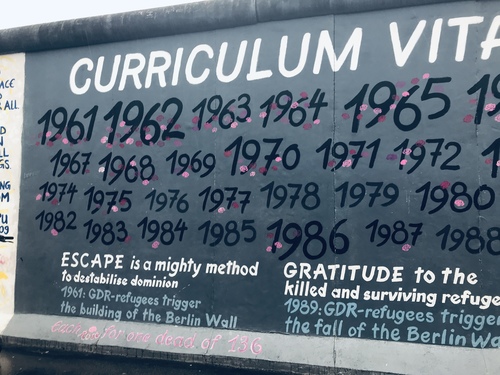 CURRICULUM VITA
1961 1962 1963 1964 1965 19
1967 1968 1969 1970 1971 1972 1
1974 1975 1976 1977 1978 1979 1980
1982 1983 1984 1985 1986 1987 1988
ESCAPE is a mighty method
to destabilise dominion
1961: GDR-refugees trigger
the building of the Berlin Wall
GRATITUDE to the
killed and surviving refuge
1989: GDR-refugees trigger
the fall of the Berlin Wa
for one dead of 136
ACE
ALL